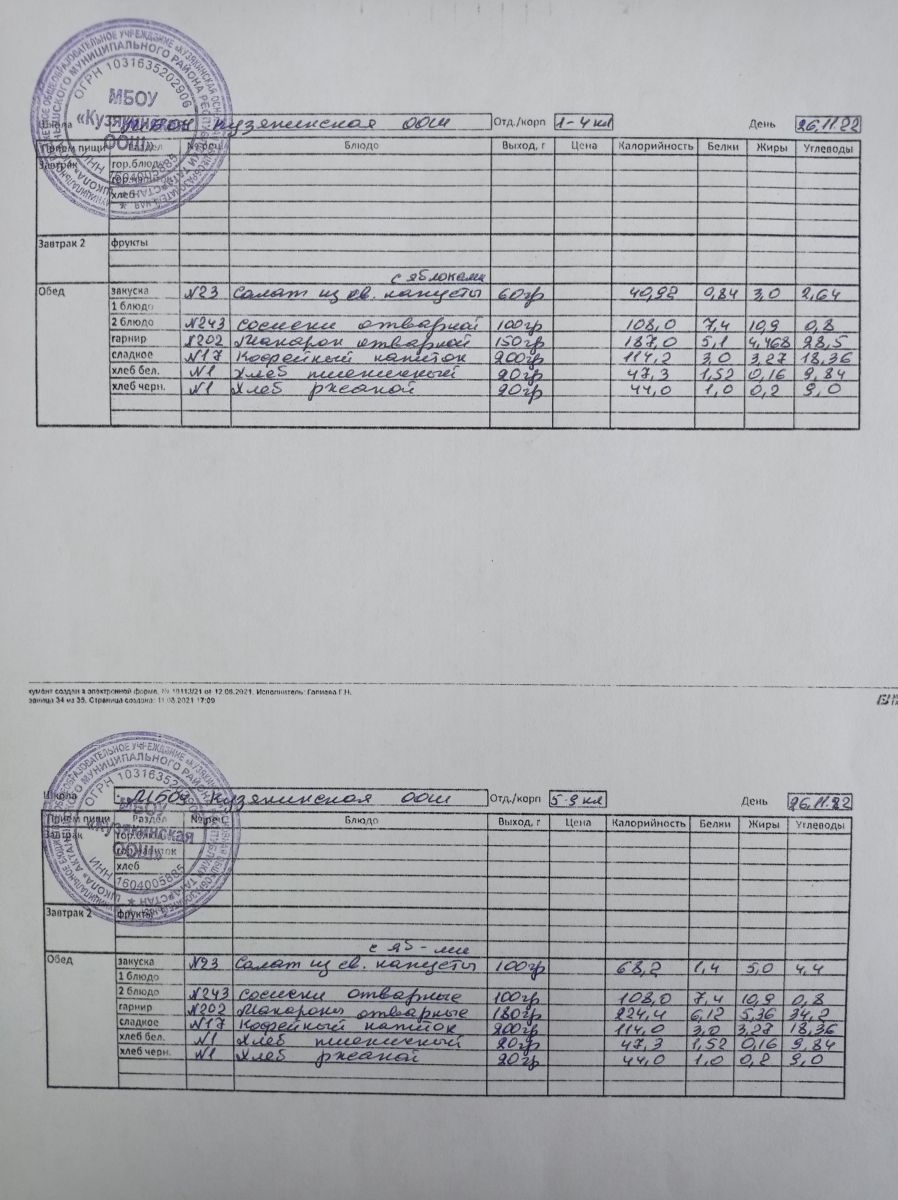 МБОУ «Кузякинская ООШ»
ОГРН 1031635202906
ИНН 1604005885
Школа МБОУ Кузякинская ООШ Отд./корп 1-4 кл День 26.11.22
Прием пищи Раздел № рец. Блюдо Выход, г Цена Калорийность Белки Жиры Углеводы
Завтрак гор.блюдо
гор.напиток
хлеб
Завтрак 2 фрукты
с яблоками
Обед закуска №23 Салат из св. капусты 60гр 40,92 0,84 3,0 2,64
1 блюдо
2 блюдо №243 сосиски отварной 100гр 108,0 7,4 10,9 0,8
гарнир №202 Макарон отварной 150гр 187,0 5,1 4,468 28,5
сладкое №17 Кофейный напиток 200гр 114,2 3,0 3,27 18,36
хлеб бел. №1 Хлеб пшеничный 20гр 47,3 1,52 0,16 9,84
хлеб черн. №1 Хлеб ржаной 20гр 44,0 1,0 0,2 9,0
кумент создан в электронной форме. № 10113/21 от 12.08.2021. Исполнитель: Галиева Г.Н.
раница 34 из 35. Страница создана: 11.08.2021 17:09
МБОУ «Кузякинская ООШ»
ОГРН 1031635202906
ИНН 1604005885
Школа МБОУ Кузякинская ООШ Отд./корп 5-9 кл День 26.11.22
Прием пищи Раздел № рец. Блюдо Выход, г Цена Калорийность Белки Жиры Углеводы
Завтрак гор.блюдо
гор.напиток
хлеб
Завтрак 2 фрукты
с яб-ми
Обед закуска №23 Салат из св. капусты 100гр 68,2 1,4 5,0 4,4
1 блюдо
2 блюдо №243 Сосиски отварные 100гр 108,0 7,4 10,9 0,8
гарнир №202 Макароны отварные 180гр 224,4 6,12 5,36 34,2
сладкое №17 Кофейный напиток 200гр 114,0 3,0 3,27 18,36
хлеб бел. №1 Хлеб пшеничный 20гр 47,3 1,52 0,16 9,84
хлеб черн. №1 Хлеб ржаной 20гр 44,0 1,0 0,2 9,0